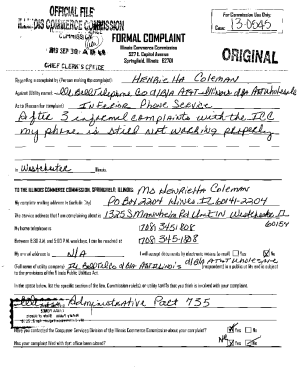 OFFICIAL FILE
ILLINOIS COMMERCE COMMISSION
For Commission Use Only:
Case: 13-0545
FORMAL COMPLAINT
Illinois Commerce Commission
527 E. Capitol Avenue
Springfield, Illinois 62701
CHIEF CLERK'S OFFICE
ORIGINAL
Regarding a complaint by (Person making the complaint): Henrietta Coleman
Against (Utility name): Ill. Bell Telephone Co d/b/a AT&T-Illinois d/b/a AT&T Wholesale
As to (Reason for complaint) Inferior Phone Service
After 3 informal complaints with the ICC
my phone is still not working properly
in Westchester Illinois.
TO THE ILLINOIS COMMERCE COMMISSION, SPRINGFIELD, ILLINOIS: Ms Henrietta Coleman
My complete mailing address is (include City) PO Box 2204 Hines Il 60141-2204
The service address that I am complaining about is 1325 S Mannheim Rd Westchester Il
60154
My home telephone is (708) 345-1808
Between 8:30 A.M. and 5:00 P.M. weekdays, I can be reached at (708) 345-1808
My e-mail address is N/A I will accept documents by electronic means (e-mail) Yes No
Full name of utility company Ill. Bell Tel Co d/b/a AT&T Illinois d/b/a AT&T Wholesale (respondent) is a public utility and is subject
to the provisions of the Illinois Public Utilities Act.
In the space below, list the specific section of the law, Commission rule(s), or utility tariffs that you think is involved with your complaint.
Administrative Part 735
Have you contacted the Consumer Services Division of the Illinois Commerce Commission about your complaint? Yes No
Has your complaint filed with that office been closed? Yes No